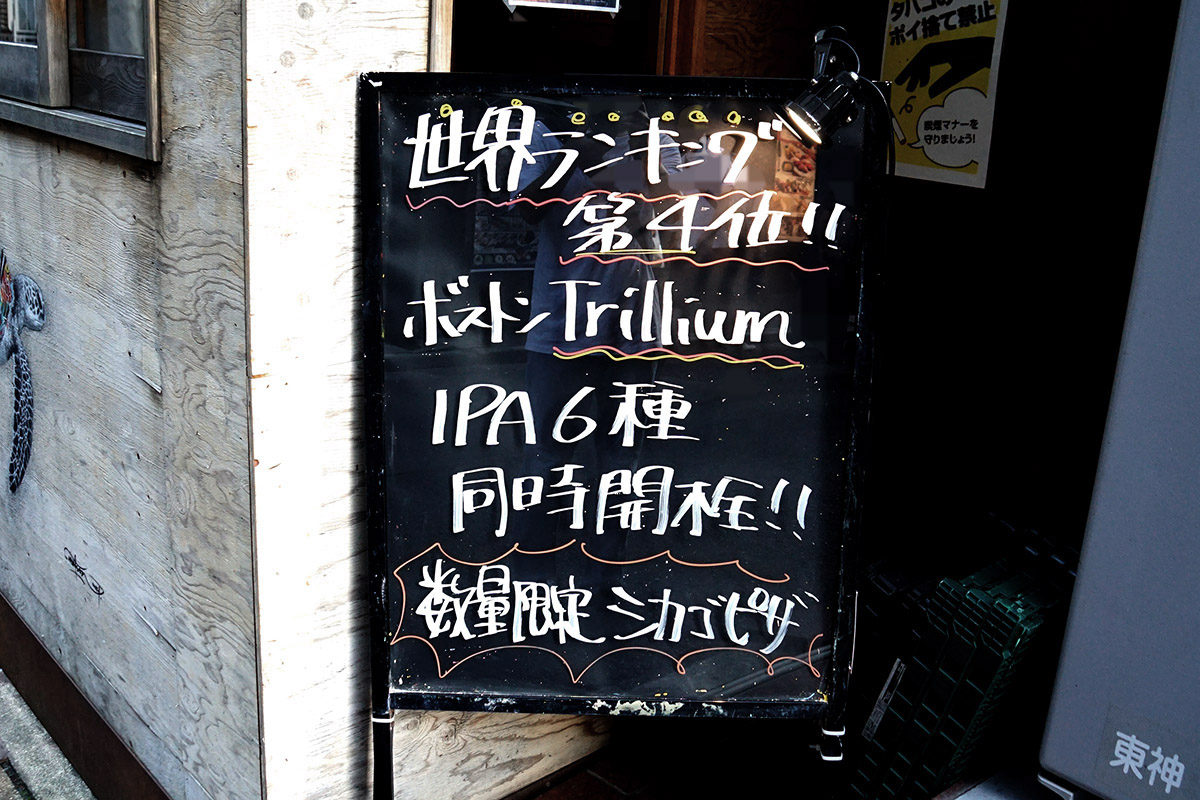 世界ランキング
第4位!!
ボストン Trillium
IPA 6種
同時開栓!!
数量限定 シカゴピザ
タバコの
ポイ捨て禁止
喫煙マナーを
守りましょう!
東神